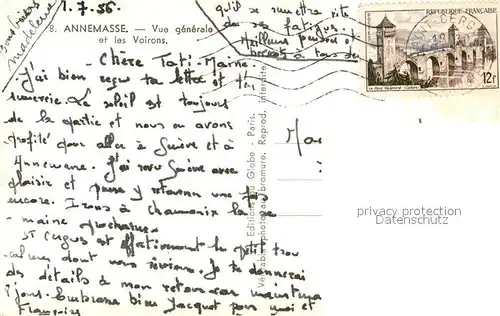 1.7.56.
qu'il se remettra vite
de ses fatigues.
Meilleures pensées et
bons baisers
Madeleine
8. ANNEMASSE. — Vue générale
et les Voirons.
Chère Tati-Marne.
J'ai bien reçu ta lettre et t'en
remercie. Le soleil est toujours
de la partie et nous en avons
profité pour aller à Genève et à
Annemasse. J'ai revu Genève avec
plaisir et pense y retourner une fois
encore. Irons à Chamonix la se-
maine prochaine.
St Cergues est effectivement le petit trou
calme dont nous rêvions. Je te donnerai
des détails à mon retour
8 jours. Embrasse bien Jacquot pour moi et
Françoise
Editions du Globe - Paris.
Véritable photograv. bromure. Reprod. interdite.
REPUBLIQUE FRANÇAISE
Le Pont Valentré (Cahors)
12F
privacy protection
Datenschutz